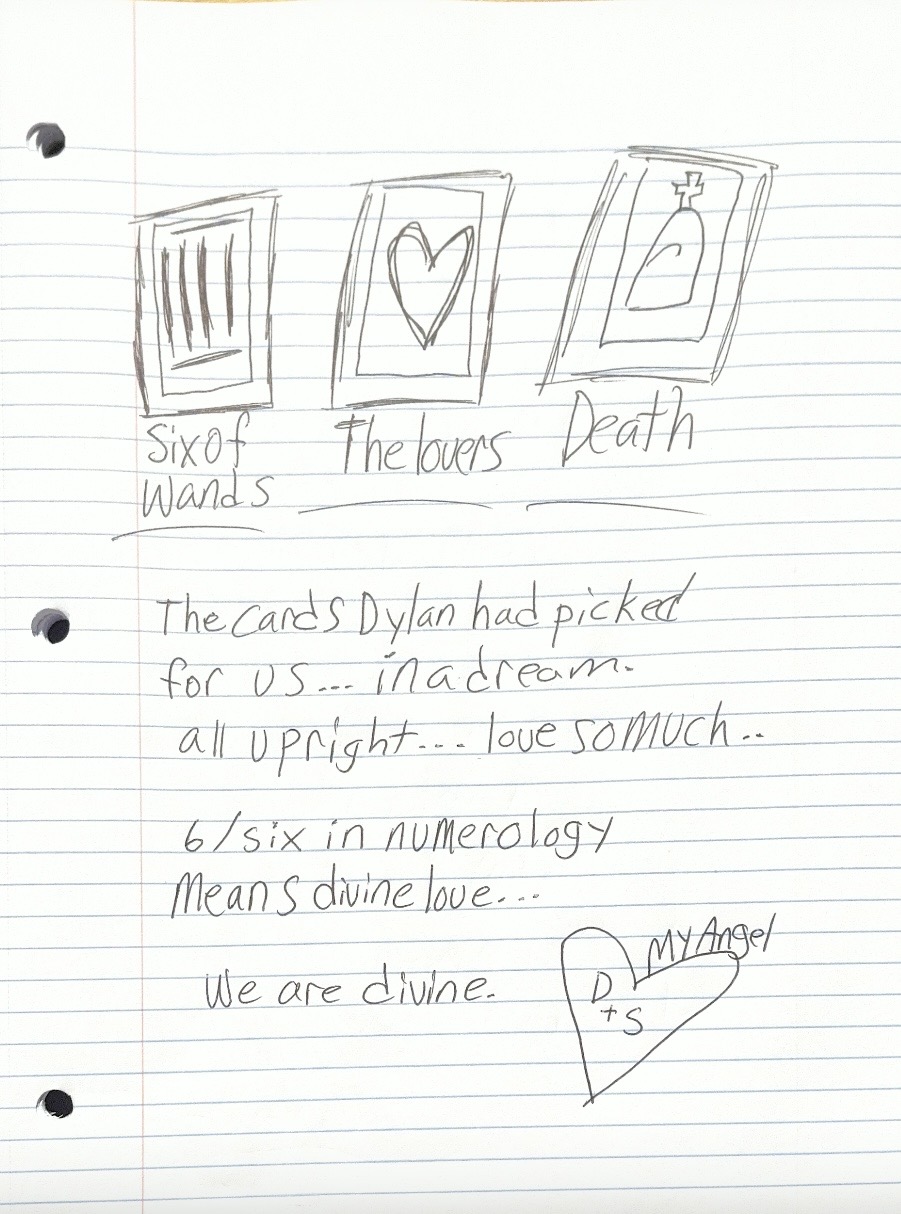 Six of
Wands
The lovers
Death
The cards Dylan had picked
for us... in a dream.
all upright.... love so much..
6/six in numerology
Means divine love....
We are divine.
My Angel
D
+ S